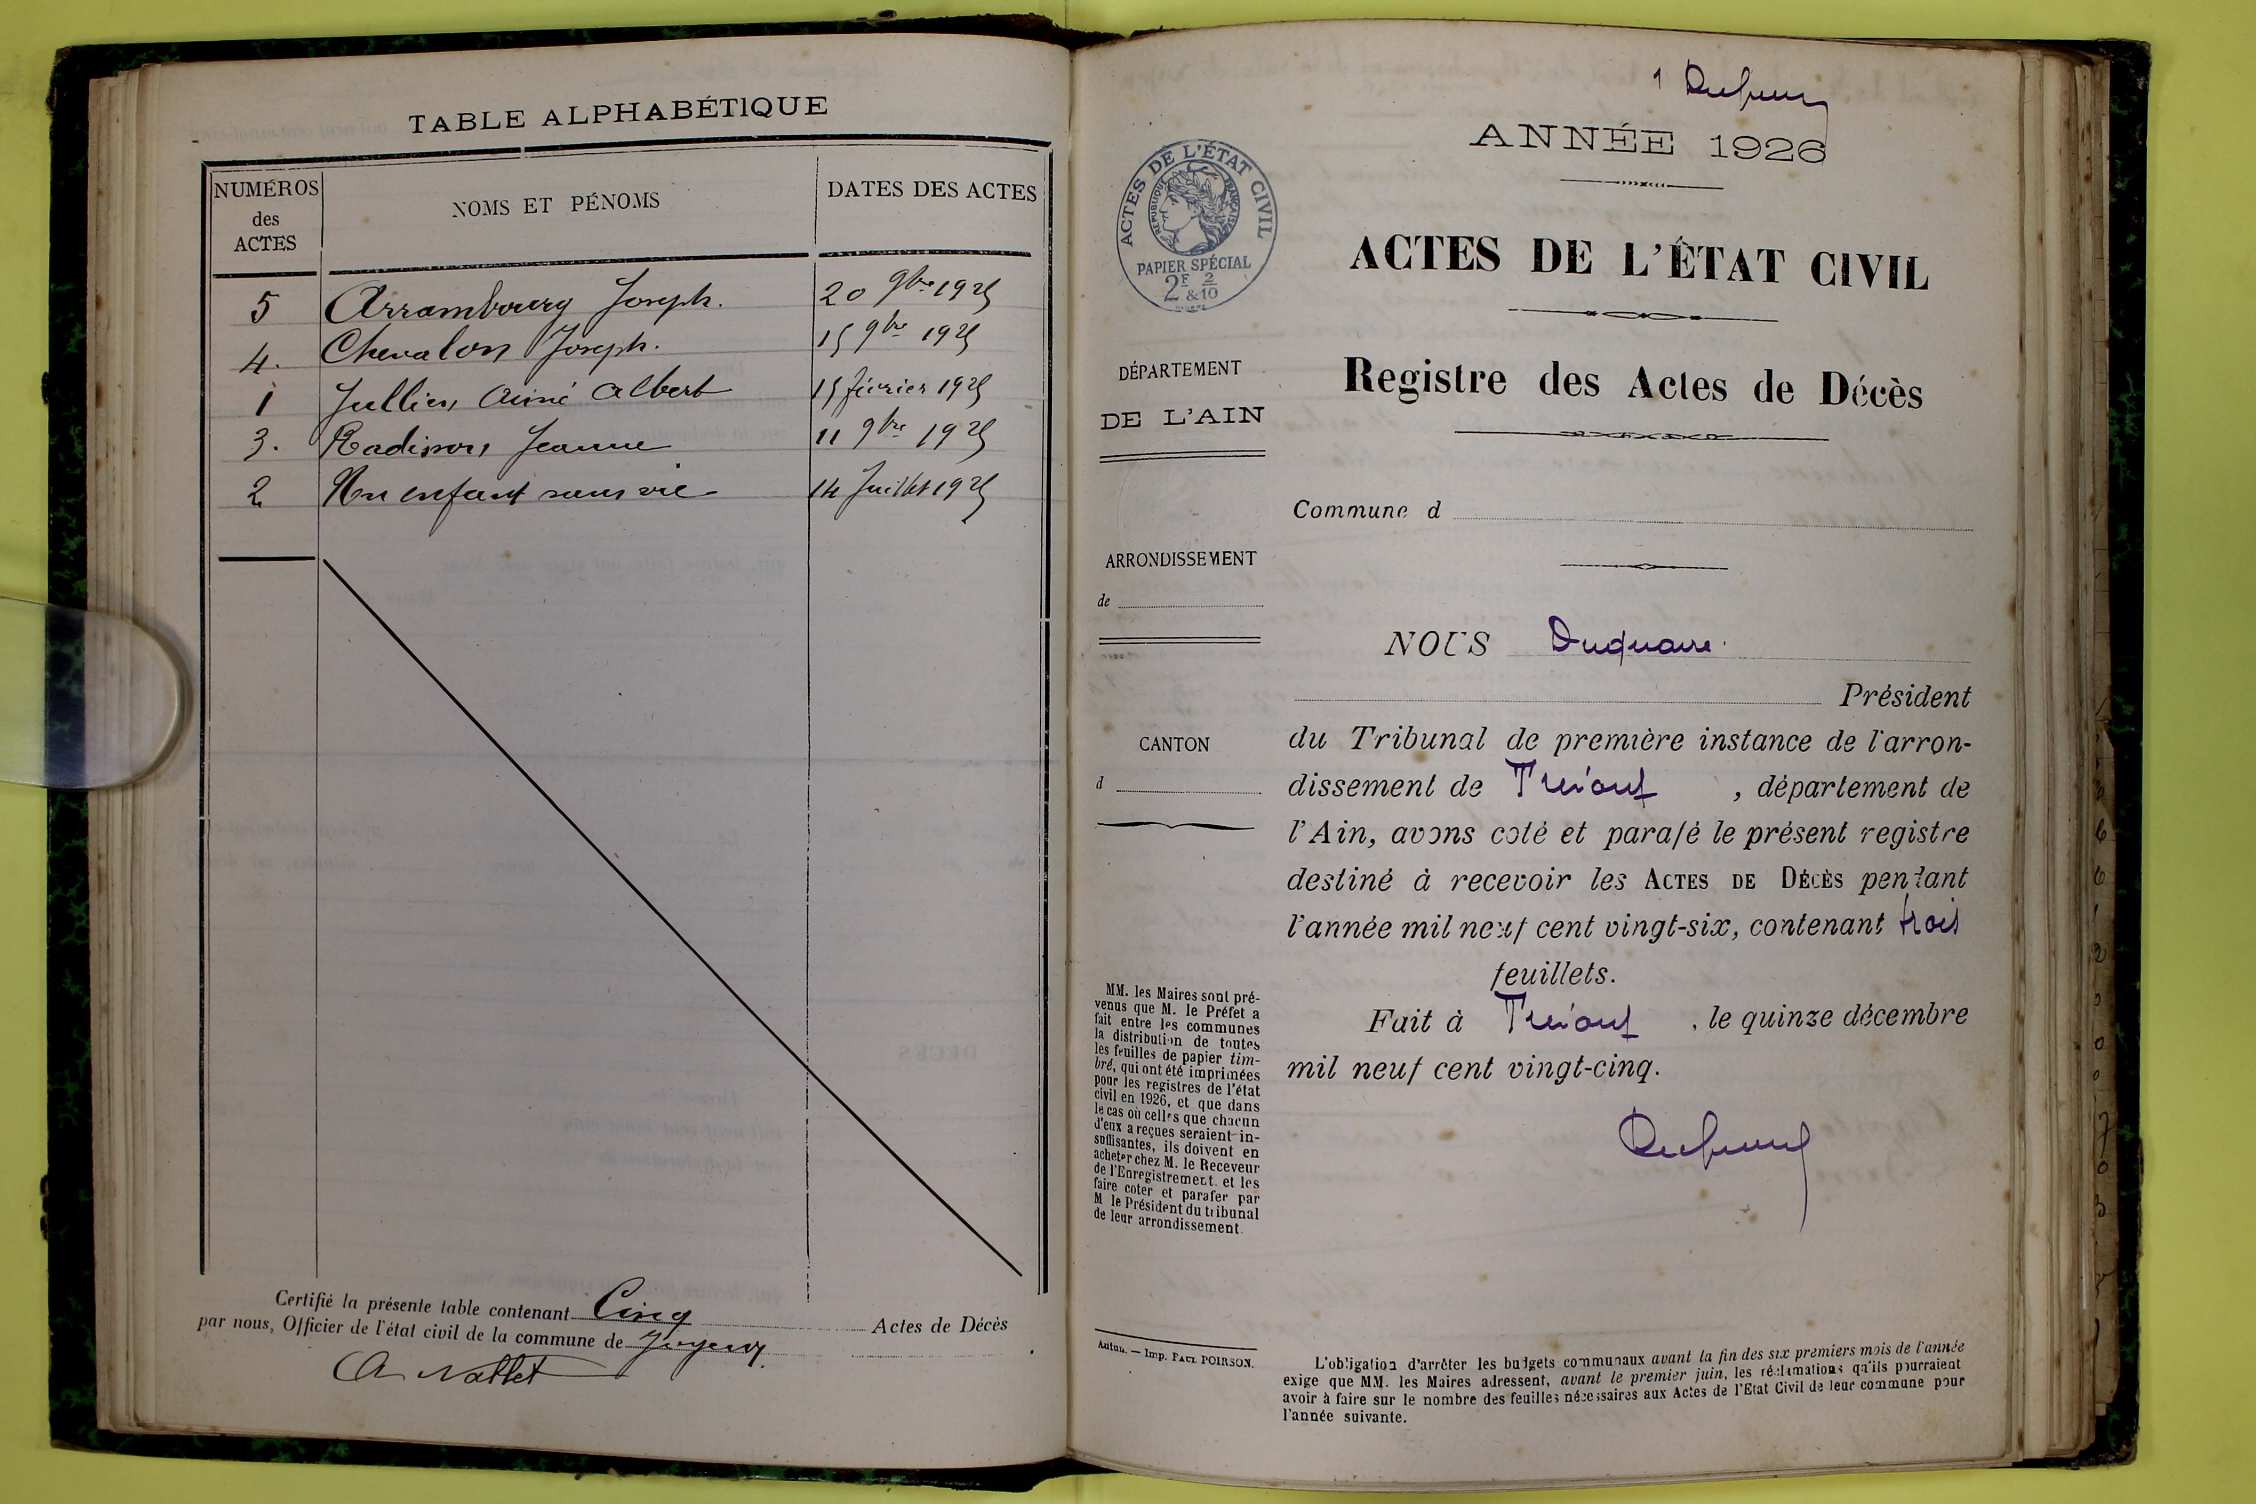 TABLE ALPHABÉTIQUE
NUMÉROS
des
ACTES
NOMS ET PÉNOMS
DATES DES ACTES
5 Arrambourg Joseph. 20 9bre 1925
4. Chevalon Joseph. 15 9bre 1925
1 Jullien Aimé Albert 15 février 1925
3. Radisson Jeanne 11 9bre 1925
2 Un enfant sans vie 14 Juillet 1925
Certifié la présente table contenant Cinq Actes de Décès
par nous, Officier de l'état civil de la commune de
A. Nallet
1
ANNÉE 1926
ACTES DE L'ÉTAT CIVIL
RÉPUBLIQUE FRANÇAISE
PAPIER SPÉCIAL
2F 2
&10
ACTES DE L'ÉTAT CIVIL
Registre des Actes de Décès
DÉPARTEMENT
DE L'AIN
Commune d
ARRONDISSEMENT
de
CANTON
d
NOUS Duquaire
Président
du Tribunal de première instance de l'arron-
dissement de Trévoux, département de
l'Ain, avons coté et parafé le présent registre
destiné à recevoir les ACTES DE DÉCÈS pendant
l'année mil neuf cent vingt-six, contenant trois
feuillets.
Fait à Trévoux, le quinze décembre
mil neuf cent vingt-cinq.
MM. les Maires sont pré-
venus que M. le Préfet a
fait entre les communes
la distribution de toutes
les feuilles de papier tim-
bré, qui ont été imprimées
pour les registres de l'état
civil en 1926, et que dans
le cas où celles que chacun
d'eux a reçues seraient in-
suffisantes, ils doivent en
acheter chez M. le Receveur
de l'Enregistrement et les
faire coter et parafer par
M le Président du tribunal
de leur arrondissement.
Autun. — Imp. PAUL POIRSON.
L'obligation d'arrêter les budgets communaux avant la fin des six premiers mois de l'année
exige que MM. les Maires adressent, avant le premier juin, les réclamations qu'ils pourraient
avoir à faire sur le nombre des feuilles nécessaires aux Actes de l'Etat Civil de leur commune pour
l'année suivante.